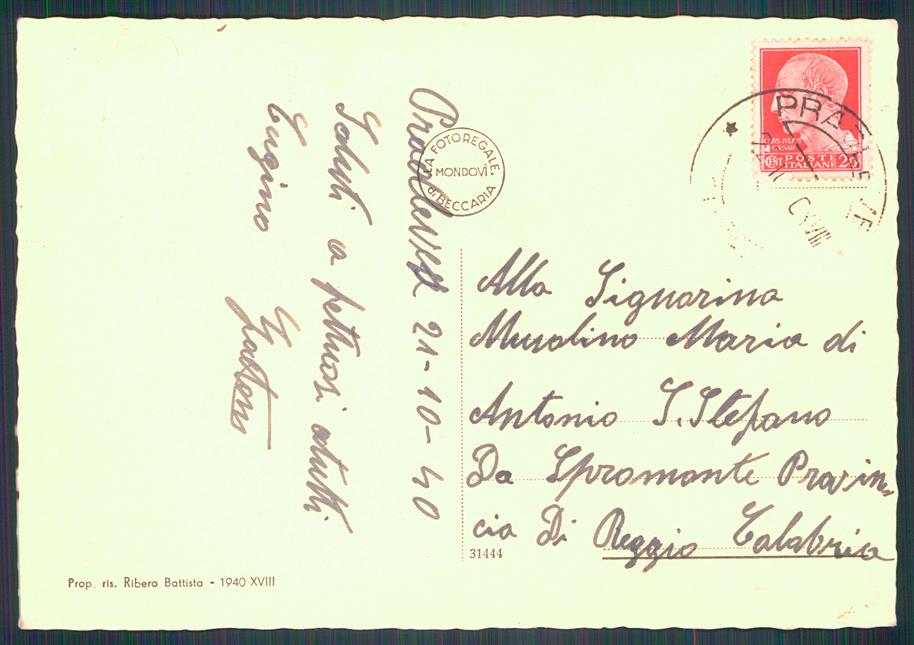 Pradleves 21-10-40
Saluti a fettuosi atutti
Cugino
Gastone
VERA FOTOREGALE
MONDOVÌ
G. BECCARIA
PRADLEVES
CENT POSTE 20
ITALIANE
Alla Signorina
Musolino Maria di
Antonio S. Stefano
Da Spromonte Provin-
cia Di Reggio Calabria
31444
Prop. ris. Ribero Battista - 1940 XVIII